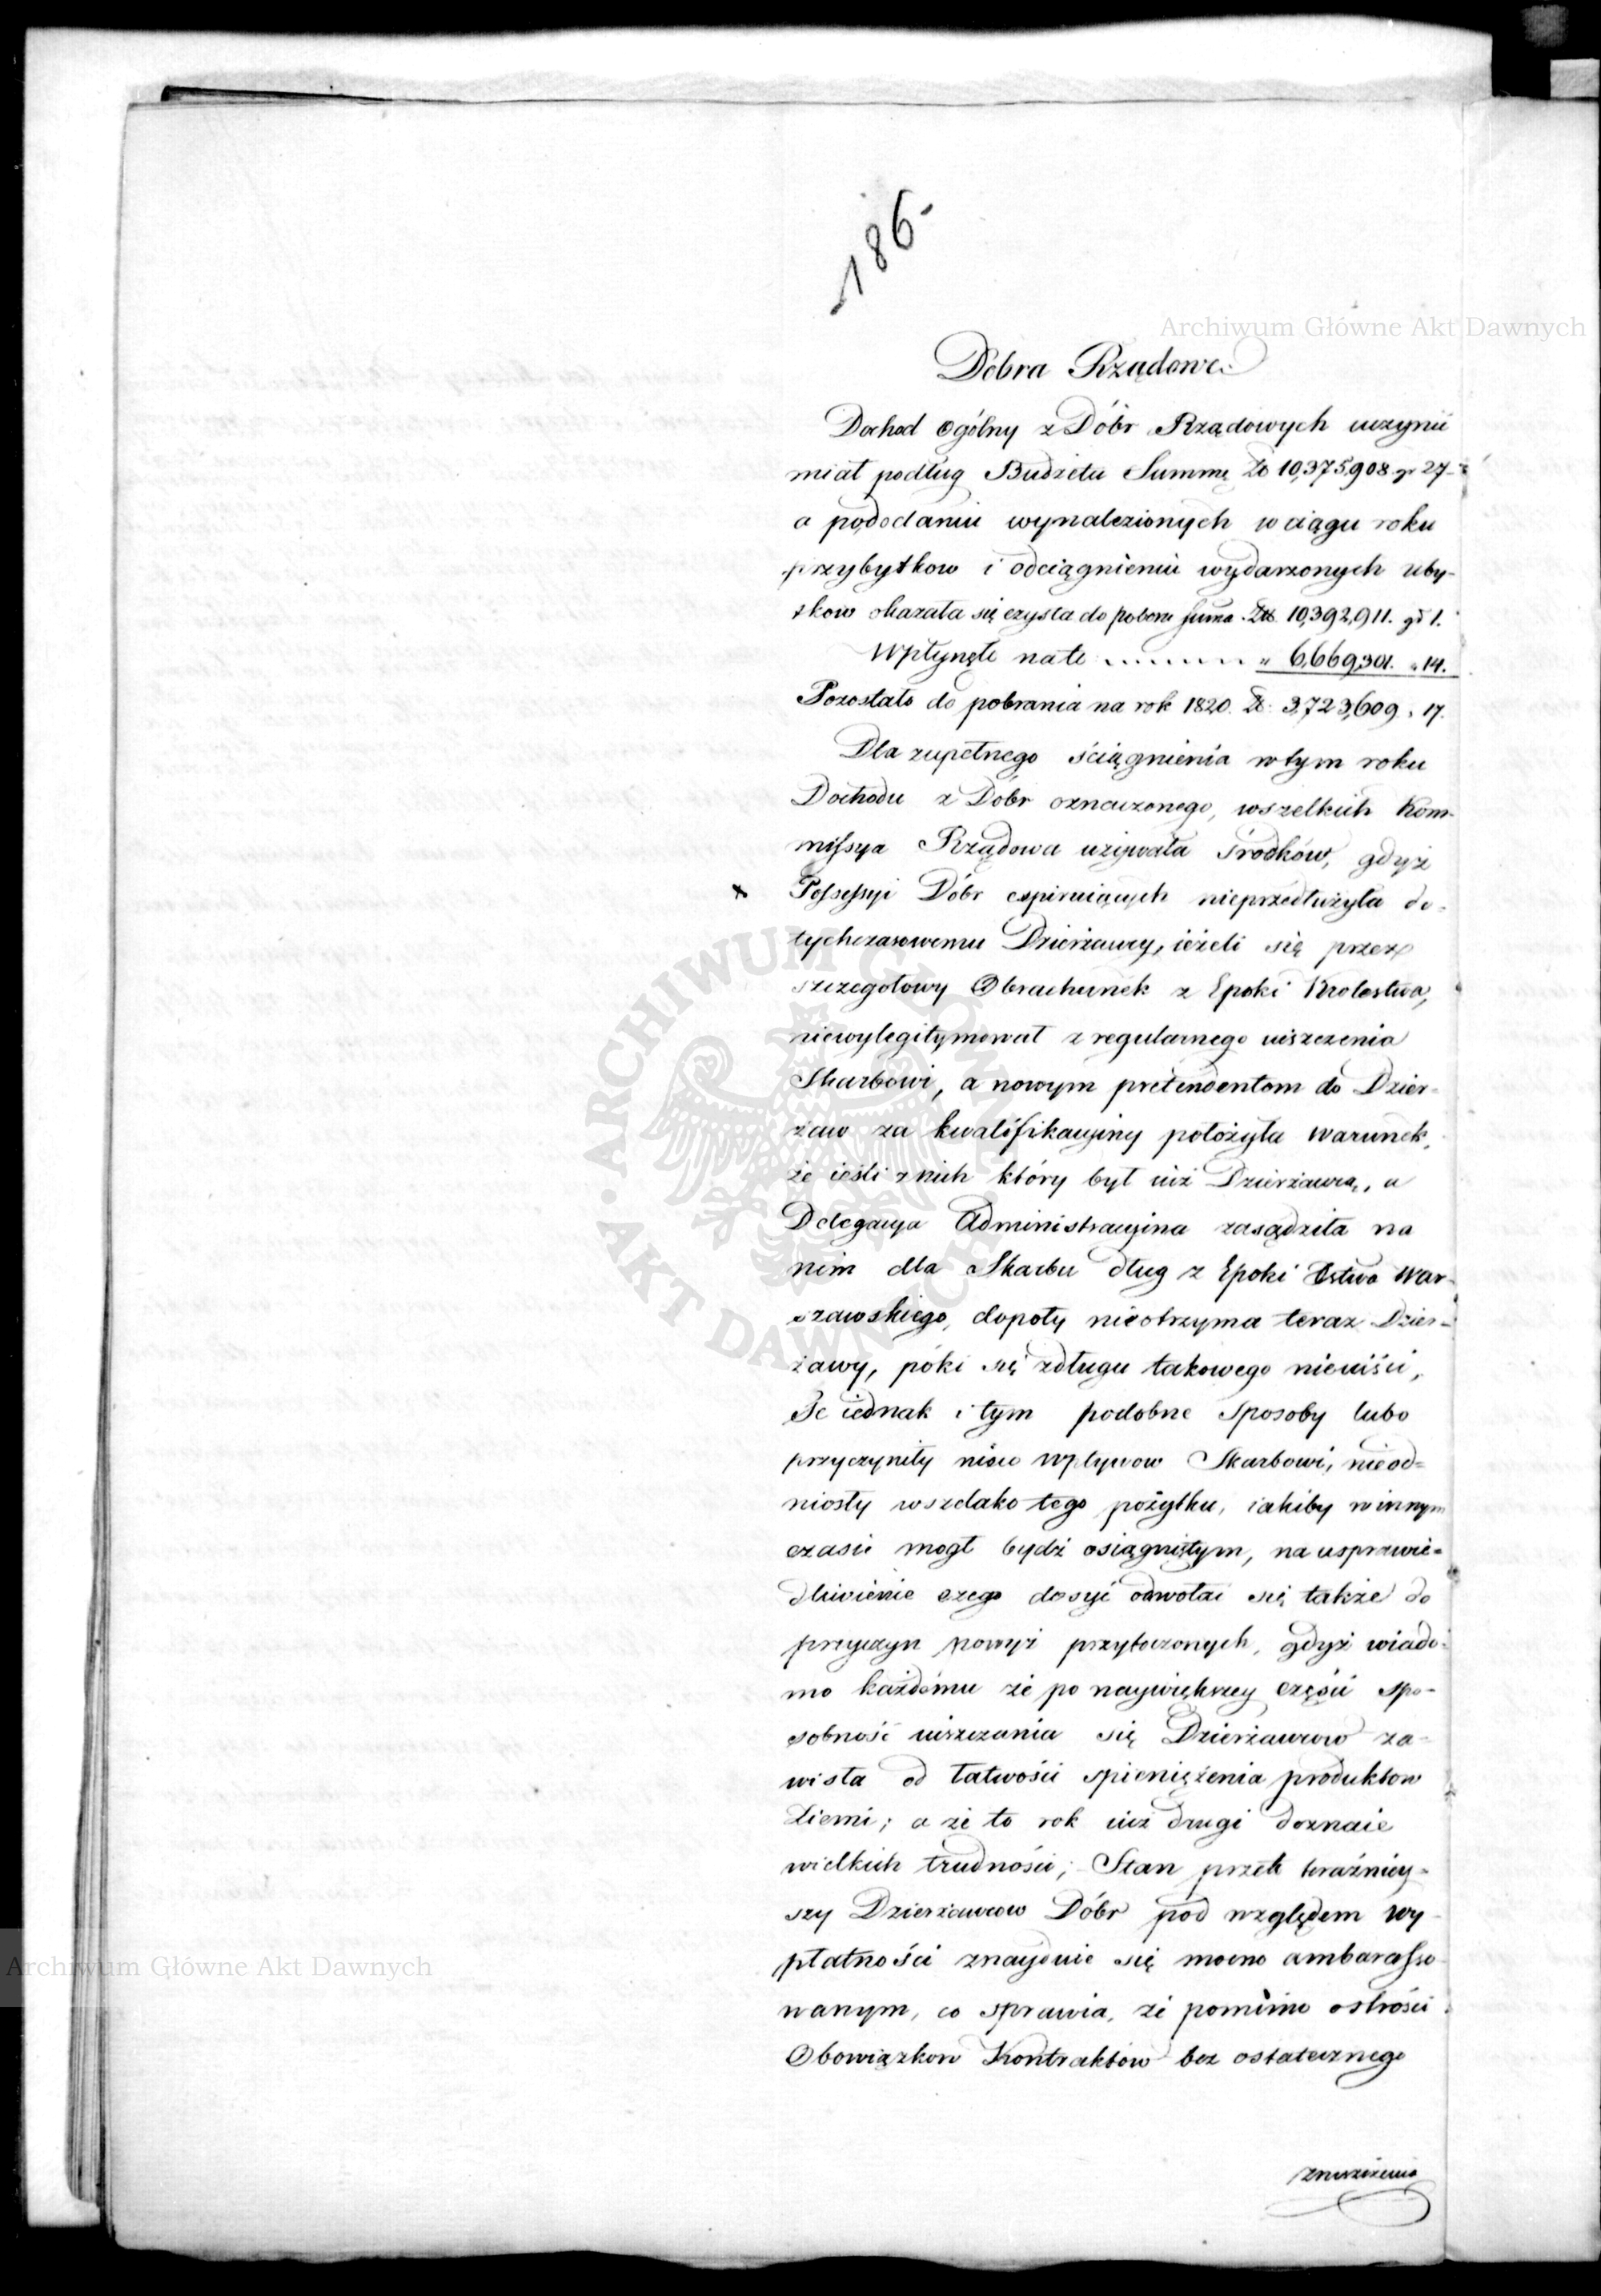 186-
Archiwum Główne Akt Dawnych
Dobra Rządowe.
Dochod Ogólny z Dóbr Rządowych uczynić
miał podług Budżetu Summę Zł 10,375,908 gr 27-
a po dodaniu wynalezionych w ciągu roku
przybytkow i odciągnieniu wydarzonych uby-
tkow okazała się czysta do poboru summa Zł 10,392,911. gr 1.
Wpłynęło na te ........ " 6,669,301. " 14.
Pozostało do pobrania na rok 1820. Zł: 3,723,609 " 17.
Dla zupełnego ściągnienia w tym roku
Dochodu z Dóbr oznaczonego, wszelkich Kom-
missya Rządowa używała środków, gdyż
x Possessyi Dóbr expiruiących nieprzedłużyła do-
tychczasowemu Dzierżawcy, ieżeli się przez
szczegołowy Obrachunek z Epoki Krolestwa,
niewylegitymował z regularnego uiszczenia
Skarbowi, a nowym pretendentom do Dzier-
żaw za kwalifikacyiny położyła warunek,
że ieśli z nich który był iuż Dzierżawcą, a
Delegacya Administracyina zasądziła na
nim dla Skarbu dług z Epoki Xstwa War-
szawskiego, dopoty nieotrzyma teraz Dzier-
żawy, póki się z długu takowego nieuiści,
Że iednak i tym podobne sposoby lubo
przyczyniły nieco wpływow Skarbowi, nieod-
niosły wszelako tego pożytku, iakiby w innym
czasie mogł bydź osiągniętym, na usprawie-
dliwienie czego dosyć odwołać się także do
przyczyn powyż przytoczonych, gdyż wiado-
mo każdemu że po naywiększey części spo-
sobność uiszczania się Dzierżawcow za-
wisła od łatwości spieniężenia produktow
Ziemi; a że to rok iuż drugi doznaie
wielkich trudności; Stan przeto teraźniey-
szy Dzierżawcow Dóbr pod względem wy-
płatności znayduie się mocno ambarasso-
wanym, co sprawia, że pomimo ostrości
Obowiązkow Kontraktow bez ostatecznego
zniszczenia
ARCHIWUM GŁÓWNE AKT DAWNYCH
Archiwum Główne Akt Dawnych